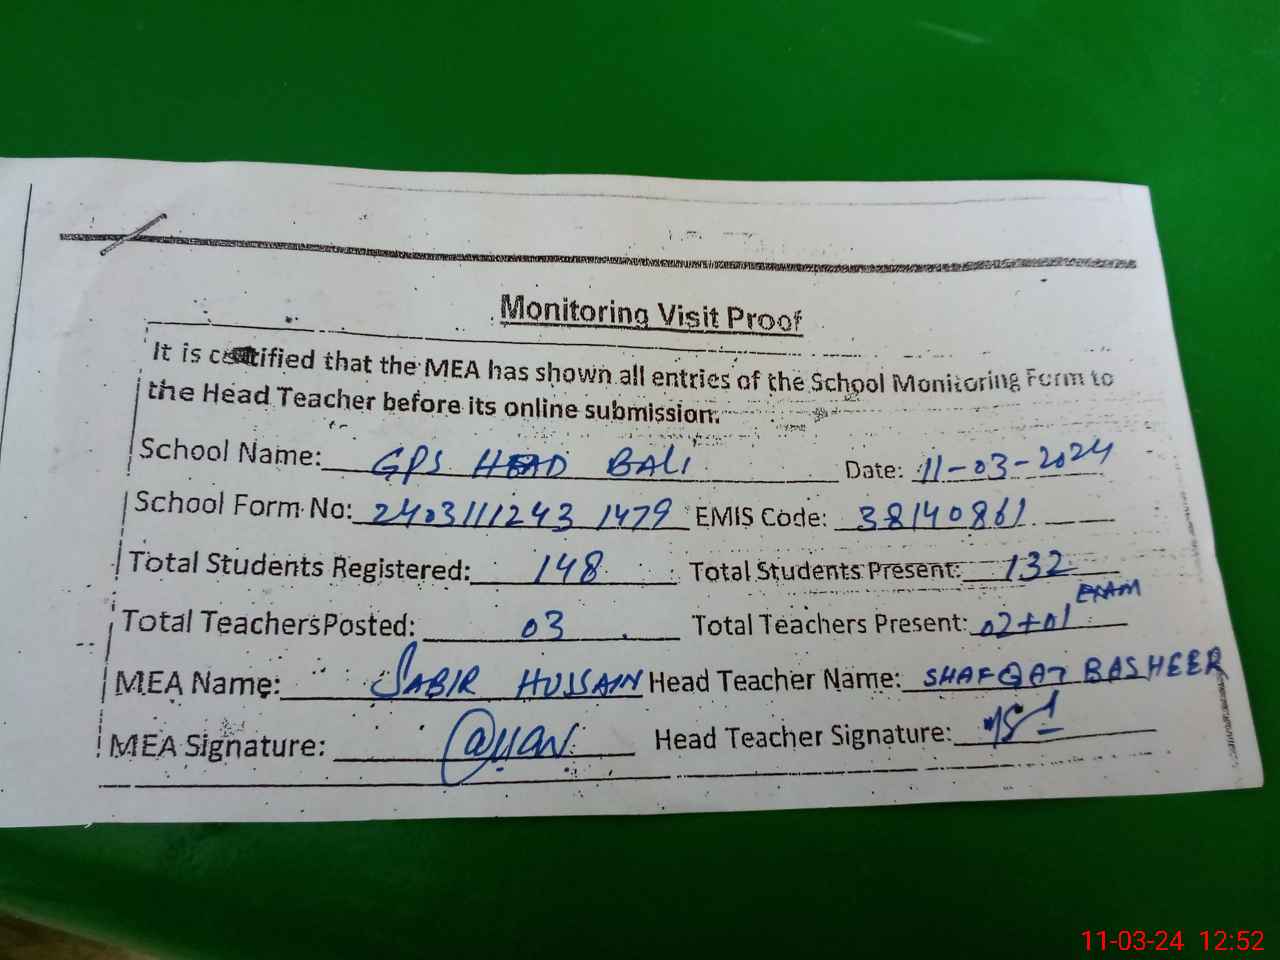 Monitoring Visit Proof
It is certified that the MEA has shown all entries of the School Monitoring Form to
the Head Teacher before its online submission.
School Name: GPS HEAD BALI Date: 11-03-2024
School Form No: 2403111243 1479 EMIS Code: 38140861
Total Students Registered: 148 Total Students Present: 132
Total Teachers Posted: 03 Total Teachers Present: 02+01 EXAM
MEA Name: SABIR HUSSAIN Head Teacher Name: SHAFQAT BASHEER
MEA Signature: Head Teacher Signature:
11-03-24 12:52